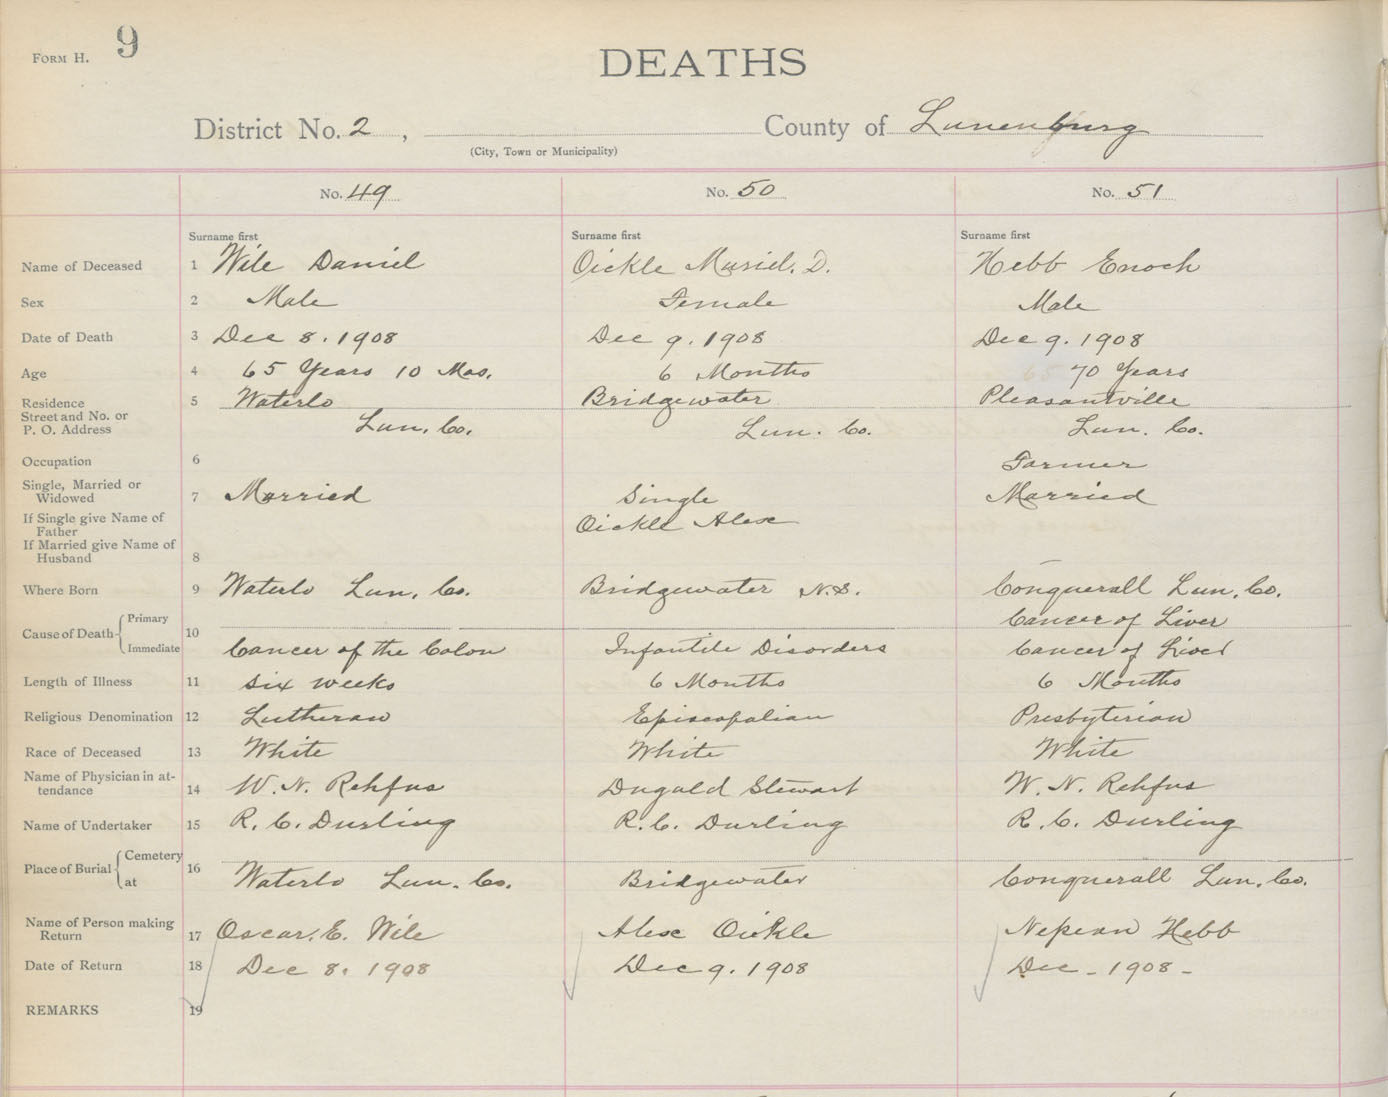 FORM H. 9
DEATHS
District No. 2, County of Lunenburg
(City, Town or Municipality)
No. 49 No. 50 No. 51
Surname first Surname first Surname first
Name of Deceased 1 Wile Daniel Oickle Muriel. D. Hebb Enoch
Sex 2 Male Female Male
Date of Death 3 Dec 8. 1908 Dec 9. 1908 Dec 9. 1908
Age 4 65 Years 10 Mos. 6 Months 70 Years
Residence 5 Waterlo Bridgewater Pleasantville
Street and No. or
P. O. Address Lun. Co. Lun. Co. Lun. Co.
Occupation 6 Farmer
Single, Married or
Widowed 7 Married Single Married
If Single give Name of
Father Oickle Alex
If Married give Name of
Husband 8
Where Born 9 Waterlo Lun. Co. Bridgewater N.S. Conquerall Lun. Co.
Cause of Death 10 Primary Cancer of Liver
Immediate Cancer of the Colon Infantile Disorders Cancer of Liver
Length of Illness 11 Six weeks 6 Months 6 Months
Religious Denomination 12 Lutheran Episcopalian Presbyterian
Race of Deceased 13 White White White
Name of Physician in at-
tendance 14 W. N. Rehfus Dugald Stewart W. N. Rehfus
Name of Undertaker 15 R. C. Durling R. C. Durling R. C. Durling
Place of Burial 16 Cemetery
at Waterlo Lun. Co. Bridgewater Conquerall Lun. Co.
Name of Person making
Return 17 Oscar. E. Wile Alex Oickle Nepean Hebb
Date of Return 18 Dec 8. 1908 Dec 9. 1908 Dec - 1908 -
REMARKS 19